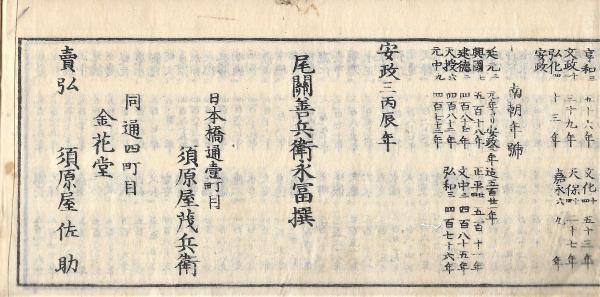 享和三 五十六年 文化十四 五十三年
文政十二 三十九年 天保十四 二十七年
弘化四 十三年 嘉永六 々 年
安政
南朝年號
延元二 元年ヨリ安政三年迄五百廿一年
興國七 五百十八年 正平廿四 五百十一年
建德二 四百八十七年 文中三 四百八十五年
天授六 四百八十二年 弘和三 四百七十六年
元中九 四百七十三年
安政三丙辰年
尾關善兵衛永冨撰
日本橋通壹町目
須原屋茂兵衛
同通四町目
金花堂
賣弘 須原屋佐助